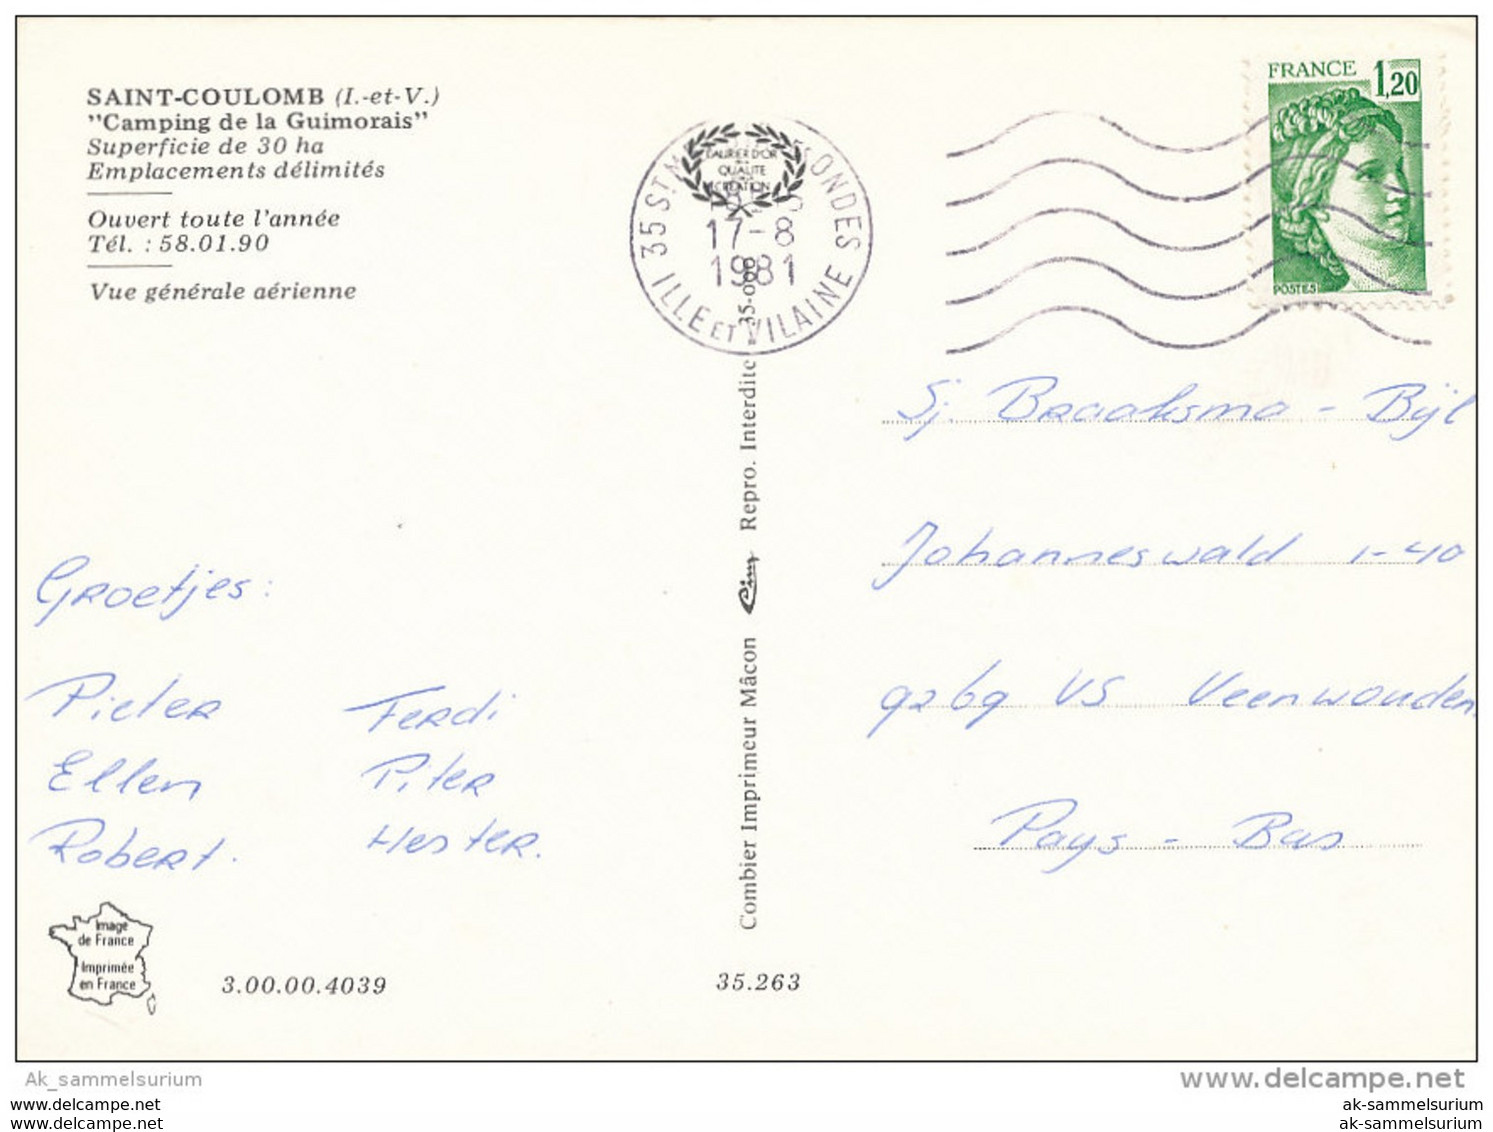 SAINT-COULOMB (I.-et-V.)
"Camping de la Guimorais"
Superficie de 30 ha
Emplacements délimités
Ouvert toute l'année
Tél. : 58.01.90
Vue générale aérienne
Groetjes:
Pieter Ferdi
Ellen Piter
Robert. Hester.
Image
de France
Imprimée
en France
3.00.00.4039
35.263
Combier Imprimeur Mâcon Cim Repro. Interdite
LAURIER D'OR
QUALITE
CREATION
17-8
1981
35 ST ONDES
ILLE ET VILAINE
FRANCE 1,20
POSTES
Sj. Braaksma - Bijl
Johanneswald 1-40
9269 VS Veenwouden
Pays - Bas
Ak_sammelsurium
www.delcampe.net
ak-sammelsurium.com ak-sammelsurium.com
ak-sammelsurium.com ak-sammelsurium.com